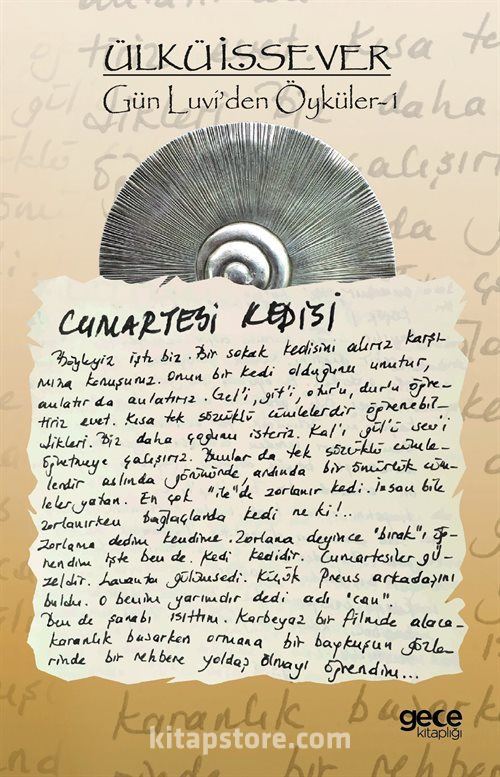 ÜLKÜİSSEVER
Gün Luvi'den Öyküler-1
CUMARTESİ KEDİSİ
Böyleyiz işte biz. Bir sokak kedisini alırız karşı-
mıza konuşuruz. Onun bir kedi olduğunu unutur,
anlatır da anlatırız. Gel'i, git'i, otur'u, dur'u öğre-
tiriz evet. Kısa tek sözcüklü cümlelerdir öğrenebil-
dikleri. Biz daha çoğunu isteriz. Kal'ı, gül'ü sev'i
öğretmeye çalışırız. Bunlar da tek sözcüklü cümle-
lerdir aslında görünürde, ardında bir ömürlük cüm-
leler yatan. En çok "ile"de zorlanır kedi. İnsan bile
zorlanırken bağlaçlarda kedi ne ki!..
Zorlama dedim kendime. Zorlama deyince "bırak"ı öğ-
rendim işte ben de. Kedi kedidir. Cumartesiler gü-
zeldir. Lavanta gülümsedi. Küçük Prens arkadaşını
buldu. O benim yarımdır dedi adı "can".
Ben de şarabı ısıttım. Karbeyaz bir filmde alaca-
karanlık basarken ormana bir baykuşun gözle-
rinde bir rehbere yoldaş olmayı öğrendim...
gece
kitaplığı
kitapstore.com